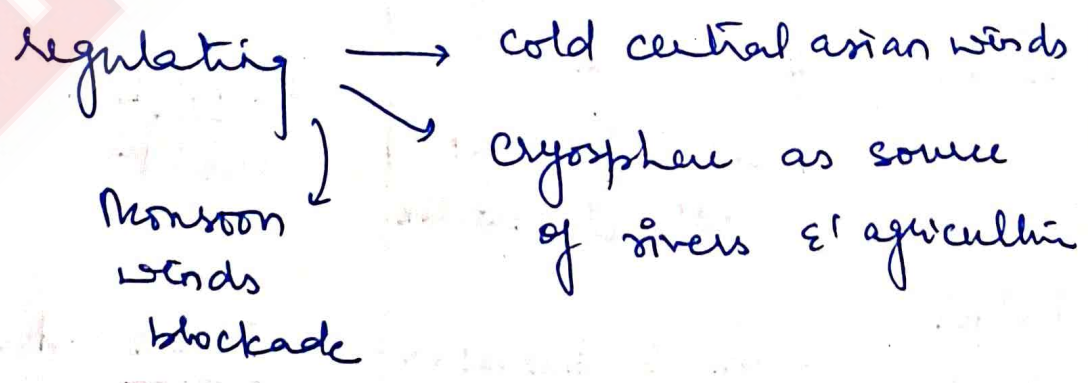 regulating → cold central asian winds
cryosphere as source
of rivers & agriculture
Monsoon
winds
blockade